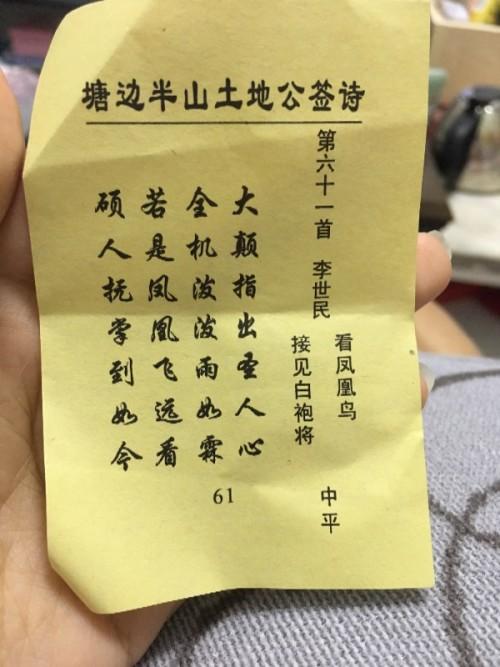 塘边半山土地公签诗
第六十一首 李世民
看凤凰鸟
接见白袍将
中平
大颠指出圣人心
全机泼泼雨如霖
若是凤凰飞远看
硕人抚掌到如今
61